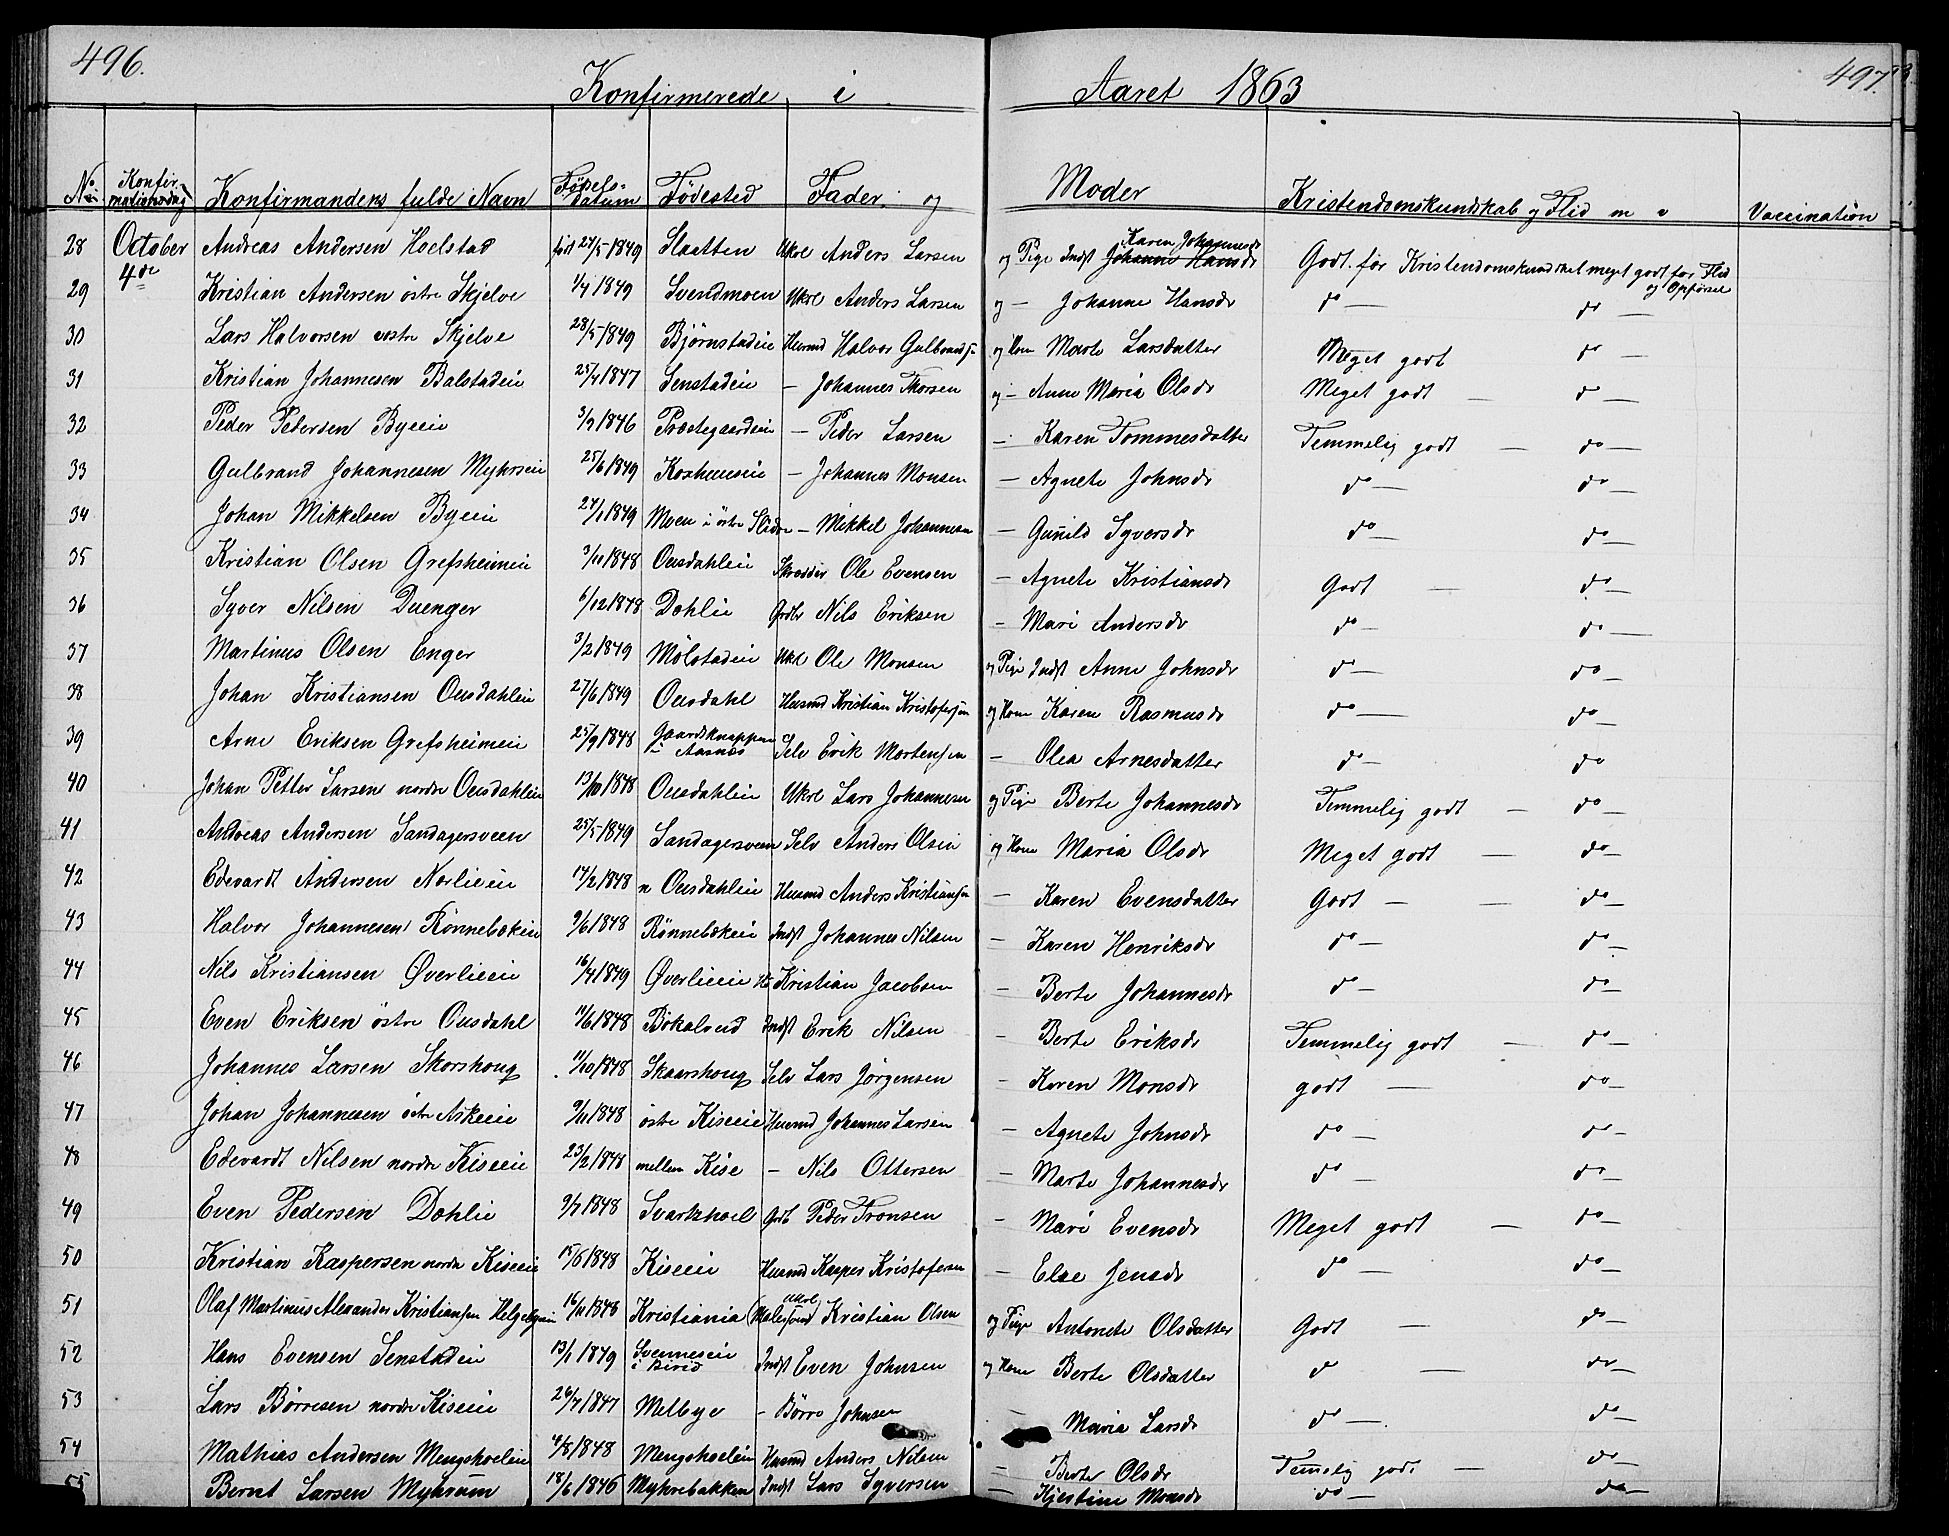 496.
Konfirmerede i Aaret 1863
497.
No Konfirmationsdag Konfirmandens fulde Navn Fødselsdatum Fødested Fader og Moder Kristendomskundskab og Flid m v Vaccination
28 October 4de Andreas Andersen Hoelstad født 24/5 1849 Slaatten Ukrl Anders Larsen og Pige Indst Johanne Hansdr Karen Johannesdr Godt for Kristendomskundskab meget godt for Flid og Opførsel
29 Kristian Andersen östre Skjelve 1/4 1849 Svendmoen Ukrl Anders Larsen og — Johanne Hansdr do — do —
30 Lars Halvorsen vestre Skjelve 28/5 1849 Bjørnstadeie Husmd Halvor Gulbrandsn og Kone Marte Larsdatter Meget godt do —
31 Kristian Johannesen Balstadeie 25/4 1847 Senstadeie — Johannes Thorsen og — Anne Maria Olsdr Meget godt — do —
32 Peder Pedersen Byeeie 3/7 1846 Præstegaardeie — Peder Larsen — Karen Tommesdatter Temmelig godt — do —
33 Gulbrand Johannesen Myhrseie 25/6 1849 Koxhuuseie — Johannes Monsen — Agnete Johnsdr do — do —
34 Johan Mikkelsen Byeeie 24/1 1849 Moen i östre Slidre — Mikkel Johannesen — Gunild Syversdr do — do —
35 Kristian Olsen Grefsheimeie 3/11 1848 Ousdahleie Skrædder Ole Evensen — Agnete Kristiansdr Godt — do —
36 Syver Nilsen Duenger 6/12 1848 Dohlie Grdbr Nils Eriksen — Mari Andersdr do — do —
37 Martinus Olsen Enger 3/2 1849 Molstadeie Ukl Ole Monsen og Pige Indst Anne Johnsdr do — do —
38 Johan Kristiansen Ousdahleie 27/6 1849 Ousdahl Husmd Kristian Kristofersen og Kone Karen Rasmusdr do — do —
39 Arne Eriksen Grefsheimeie 25/9 1848 Gaardsknappen i Aasnæs Selv Erik Mortensen — Olea Arnesdatter do — do
40 Johan Petter Larsen nordre Ousdahleie 13/10 1848 Ousdahleie Ukrl Lars Johannesen og Pige Berte Johannesdr Temmelig godt — do —
41 Andreas Andersen Sandagersveen 25/5 1849 Sandagersveen Selv Anders Olsen og Kone Maria Olsdr Meget godt — do —
42 Edevardt Andersen Norlieeie 14/2 1848 n Ousdahleie Husmd Anders Kristiansn — Karen Evensdatter Godt — do —
43 Halvor Johannesen Rönnebækeie 9/6 1848 Rönnebekeie Indst Johannes Nilsen — Karen Henriksdr do — do —
44 Nils Kristiansen Øverlieeie 16/4 1849 Øverlieeie Hd Kristian Jacobsen — Berte Johannesdr do — do —
45 Even Eriksen östre Ousdahl 11/6 1848 Bökalvid Indst Erik Nilsen — Berte Eriksdr Temmelig godt — do —
46 Johannes Larsen Skorshoug 11/10 1848 Skaarshoug Selv Lars Jörgensen — Karen Monsdr godt — do —
47 Johan Johannesen östre Askeeie 9/11 1848 östre Kiseeie Husmd Johannes Larsen — Agnete Johnsdr do — do —
48 Edevardt Nilsen nordre Kiseeie 23/2 1848 mellem Kise — Nils Ottersen — Marte Johannesdr do — do —
49 Even Pedersen Dohlie 9/7 1848 Svartshoel Grdb Peder Fronsen — Mari Evensdr Meget godt — do —
50 Kristian Kaspersen nordre Kiseeie 15/6 1848 Kiseeie Husmd Kasper Kristofersen — Else Jensdr do — do —
51 Olaf Martinus Alexander Kristiansen Helgebyeie 16/11 1848 Kristiania Ukrl Kristian Olsen og Pige Antonete Olsdatter Godt — do —
52 Hans Evensen Senstadeie 13/1 1849 Svenneseie i Birid Indst Even Johnsen og Kone Berte Olsdatter do — do —
53 Lars Börresen nordre Kiseeie 26/7 1847 Melbye — Börre Johnsen — Maria Larsdr do — do —
54 Mathias Andersen Mengshoeleie 4/8 1848 Mengshoeleie Husmd Anders Nilsen — Berte Olsdr Temelig godt — do —
55 Bernt Larsen Myhrum 18/6 1846 Myhrebakken Indst Lars Syversen — Kjestine Monsdr do — do —